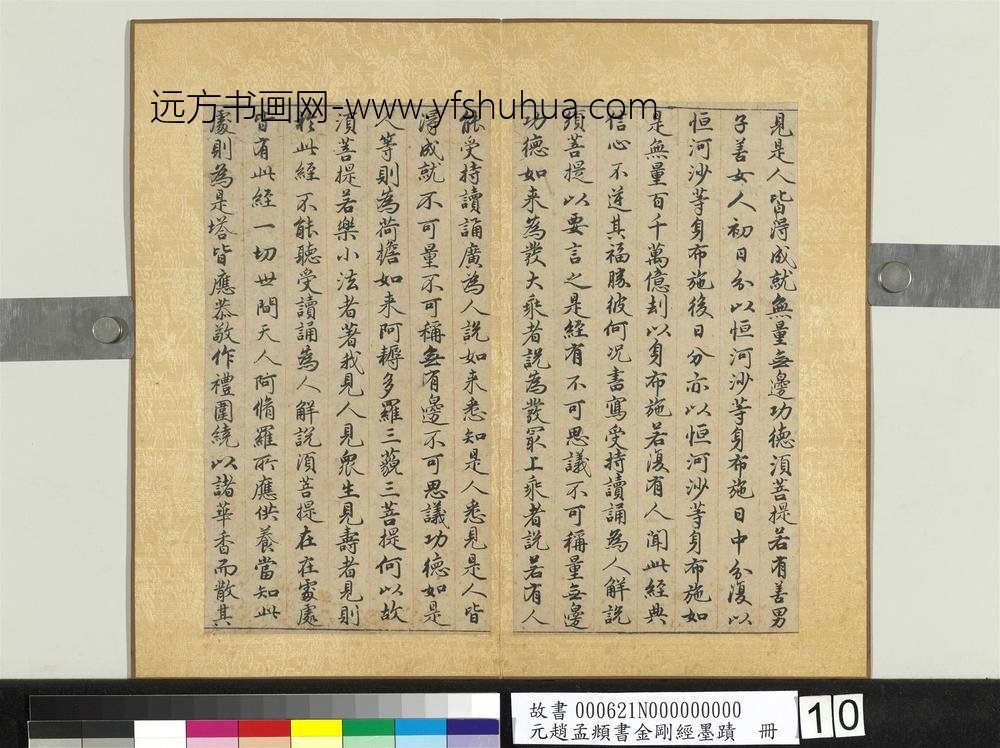 远方书画网-www.yfshuhua.com
見是人皆得成就無量無邊功德須菩提若有善男
子善女人初日分以恒河沙等身布施日中分復以
恒河沙等身布施後日分亦以恒河沙等身布施如
是無量百千萬億刦以身布施若復有人聞此經典
信心不逆其福勝彼何况書寫受持讀誦為人解說
須菩提以要言之是經有不可思議不可稱量無邊
功德如来為發大乘者說為發冣上乘者說若有人
能受持讀誦廣為人說如来悉知是人悉見是人皆
得成就不可量不可稱無有邊不可思議功德如是
人等則為荷擔如来阿耨多羅三藐三菩提何以故
須菩提若樂小法者著我見人見眾生見壽者見則
於此經不能聽受讀誦為人解說須菩提在在處處
皆有此經一切世間天人阿脩羅所應供養當知此
處則為是塔皆應恭敬作禮圍繞以諸華香而散其
故書 000621N000000000
元趙孟頫書金剛經墨蹟 冊
10